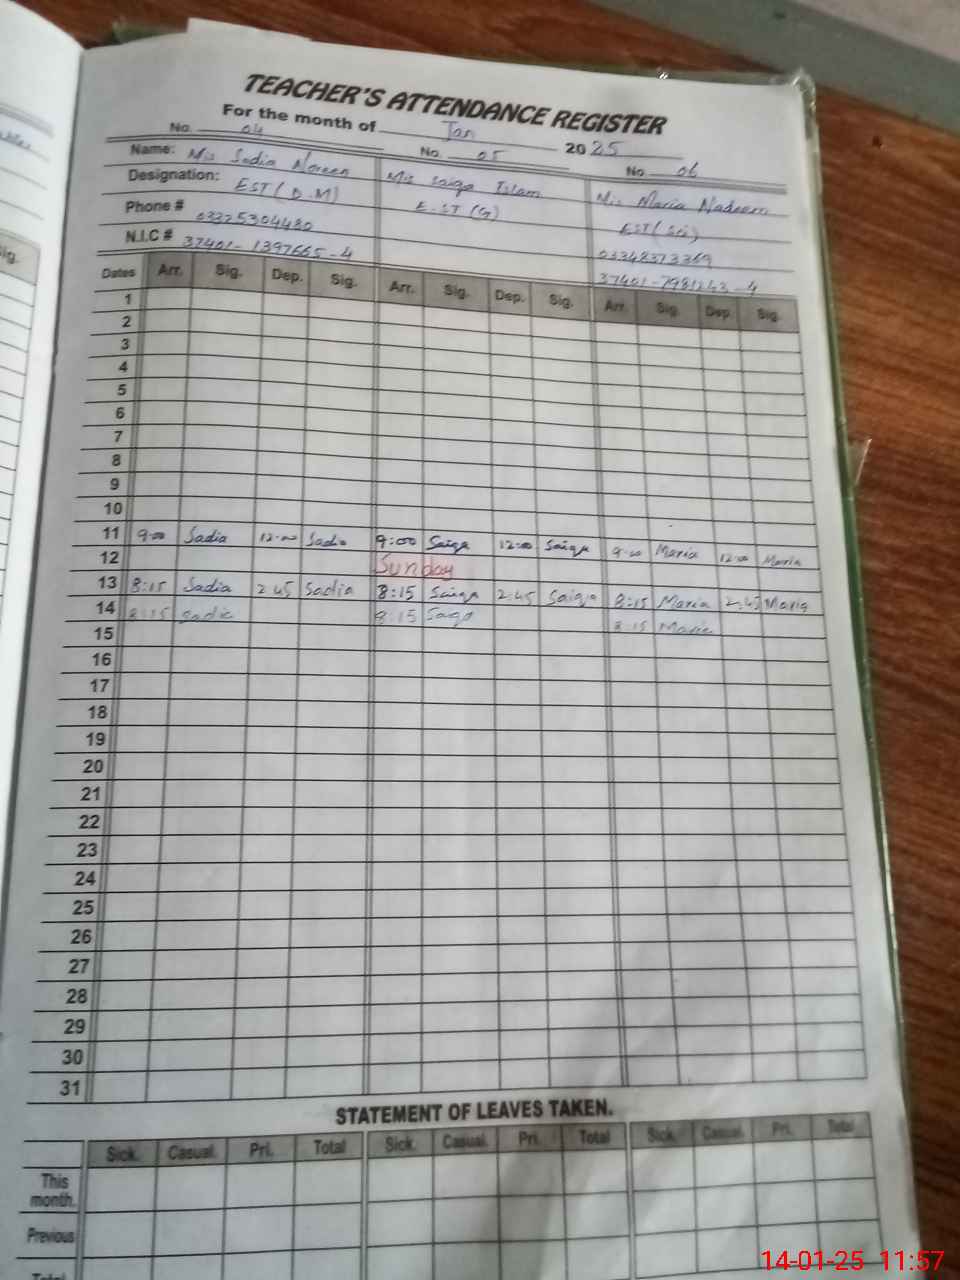 TEACHER'S ATTENDANCE REGISTER
For the month of Jan 2025
No. 04 No. 05 No. 06
Name: Mis Sadia Noreen Mis Saiqa Islam Mis Maria Nadeem
Designation: EST (D.M) E.ST (G) EST (Sci)
Phone # 03325304480 03348373369
N.I.C # 37401-1397665-4 37401-7981243-4
Dates Arr. Sig. Dep. Sig. Arr. Sig. Dep. Sig. Arr. Sig. Dep. Sig.
1
2
3
4
5
6
7
8
9
10
11 9:00 Sadia 12:00 Sadia 9:00 Saiqa 12:00 Saiqa 9:00 Maria 12:00 Maria
12 Sunday
13 8:15 Sadia 2:45 Sadia 8:15 Saiqa 2:45 Saiqa 8:15 Maria 2:45 Maria
14 8:15 Sadia 8:15 Saiqa 8:15 Maria
15
16
17
18
19
20
21
22
23
24
25
26
27
28
29
30
31
STATEMENT OF LEAVES TAKEN.
Sick. Casual. Pri. Total Sick. Casual. Pri. Total Sick. Casual. Pri. Total
This
month.
Previous
Total
14-01-25 11:57